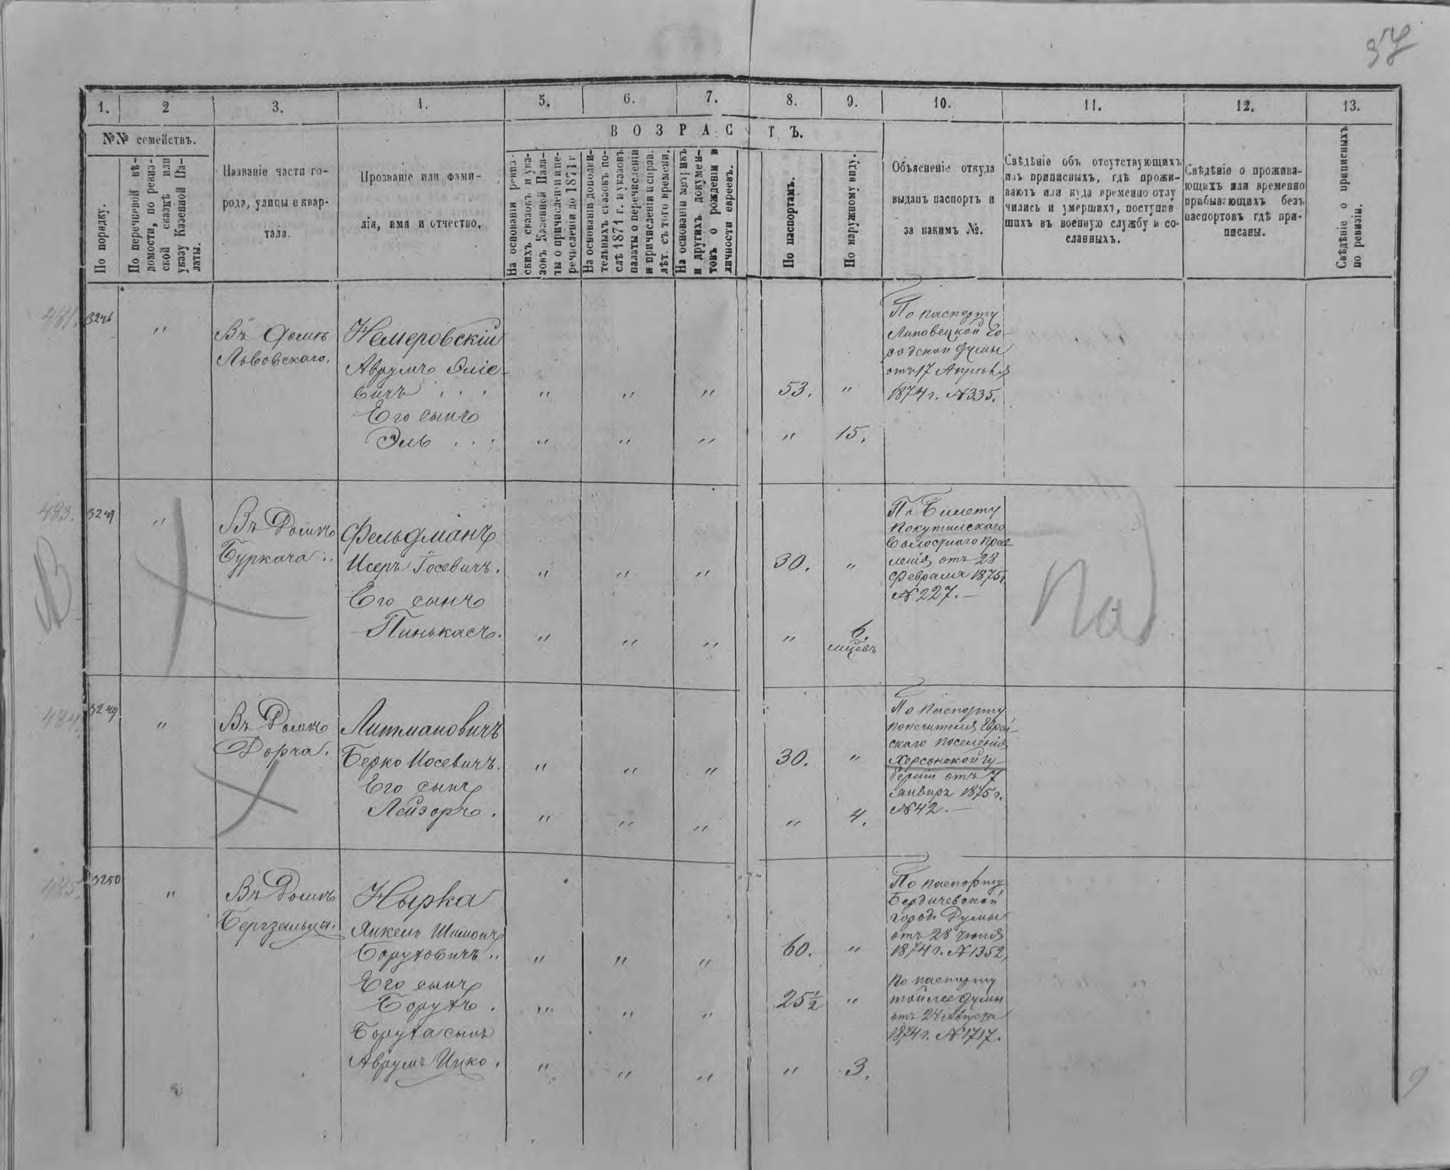 37
1. 2 3. 4. 5. 6. 7. 8. 9. 10. 11. 12. 13.
№№ семействъ.
ВОЗРАСТЪ.
По порядку.
По перечневой вѣ-
домости, по ревиз-
ской сказкѣ или
указу Казенной Па-
латы.
Названіе части го-
рода, улицы и квар-
тала.
Прозваніе или фами-
лія, имя и отчество.
На основаніи ревиз-
скихъ сказокъ и ука-
зовъ Казенной Пала-
ты о причисленіи и пе-
речисленіи до 1871 г
На основаніи дополни-
тельныхъ сказокъ по-
слѣ 1871 г. и указовъ
палаты о перечисленіи
и причисленіи и справ.
лѣт. съ того времени.
На основаніи метрикъ
и другихъ докумен-
товъ о рожденіи и
личности евреевъ.
По паспортамъ.
По наружному виду.
Объясненіе откуда
выданъ паспортъ и
за какимъ №.
Свѣдѣніе объ отсутствующихъ
изъ приписныхъ, гдѣ прожи-
ваютъ или куда временно отлу
чились и умершихъ, поступив
шихъ въ военную службу и со-
сланныхъ.
Свѣдѣніе о прожива-
ющихъ или временно
прабывающихъ безъ
паспортовъ гдѣ при-
писаны.
Свѣдѣніе о приписныхъ
по ревизіи.
481. 3246 "
Въ Домѣ
Львовскаго.
Немеровскій
Аврумъ Эліе-
вичъ . . . " " " 53. "
Его сынъ
Эль . . . " " " " 15.
По паспорту
Липовецкой Го-
родской Думы
отъ 17 Апрѣля
1874 г. №335.
483. 3249 "
Въ Домѣ
Буркача..
Фельдманъ
Исеръ Іосевичъ. " " " 30. "
Его сынъ
Пинькасъ. " " " " 6.
мцевъ
По Билету
Покутинскаго
Волостнаго Прав
ленія отъ 28
Февраля 1875 г.
№227.—
484. 3249 "
Въ Домѣ
Дорча.
Литмановичъ
Берко Іосевичъ. " " " 30. "
Его сынъ
Лейзоръ. " " " " 4.
По Паспорту
попечителя Еврей-
скаго поселенія
Херсонской гу-
берніи отъ 7
Января 1875 г.
№42.—
485. 3250 "
Въ Домѣ
Нырка
Янкель Шимонъ
Боруховичъ.. " " " 60. "
Его сынъ
Борухъ. " " " 25½ "
Боруха сынъ
Аврумъ Ицко. " " " " 3.
По паспорту
Бердичевской
Город. Думы
отъ 28 Іюня
1874 г. №1352.
По паспорту
той же думы
отъ 24 Августа
1874 г. №1717.